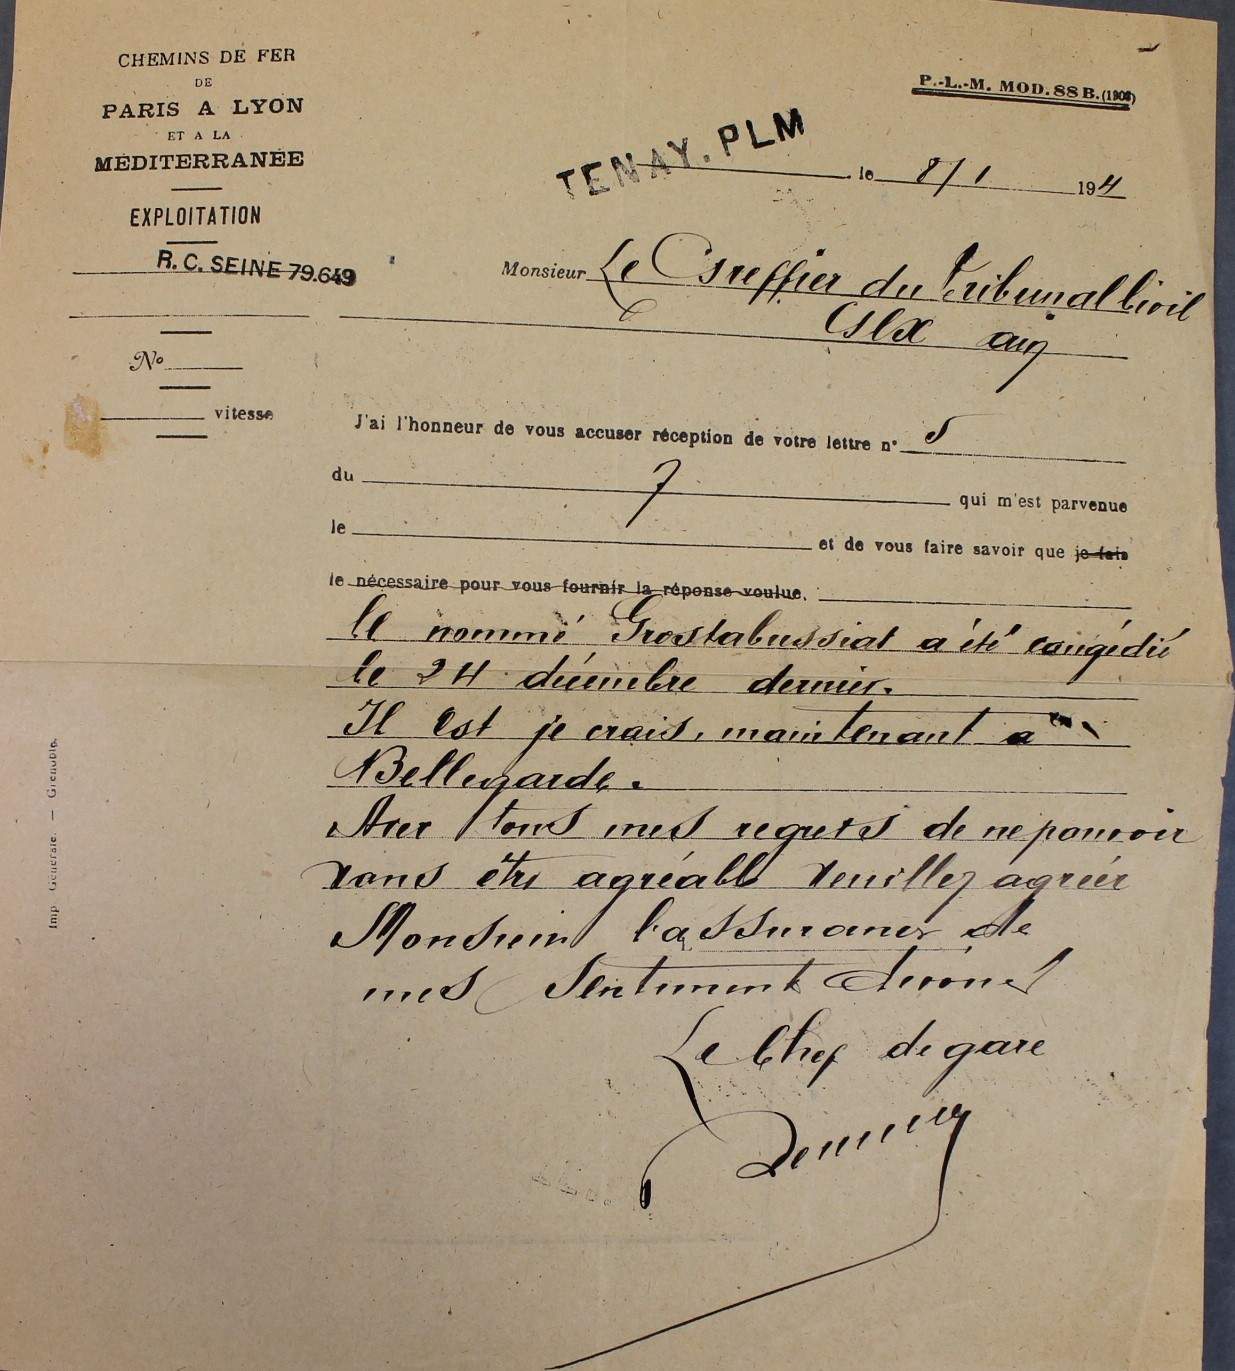 CHEMINS DE FER
DE
PARIS A LYON
ET A LA
MÉDITERRANÉE
EXPLOITATION
R. C. SEINE 79.649
No
vitesse
P.-L.-M. MOD. 88 B. (1908)
TENAY. PLM
le 8/1 194
Monsieur Le Greffier du Tribunal Civil
Gex ain
J'ai l'honneur de vous accuser réception de votre lettre n° 5
du 7 qui m'est parvenue
le et de vous faire savoir que je fais
le nécessaire pour vous fournir la réponse voulue.
le nommé Grostabussiat a été congédié
le 24 décembre dernier.
Il est je crois, maintenant a
Bellegarde.
Avec tous mes regrets de ne pouvoir
vous être agréable veuillez agréer
Monsieur l'assurance de
mes sentiment dévoués
Le Chef de gare
Imp Générale. — Grenoble.